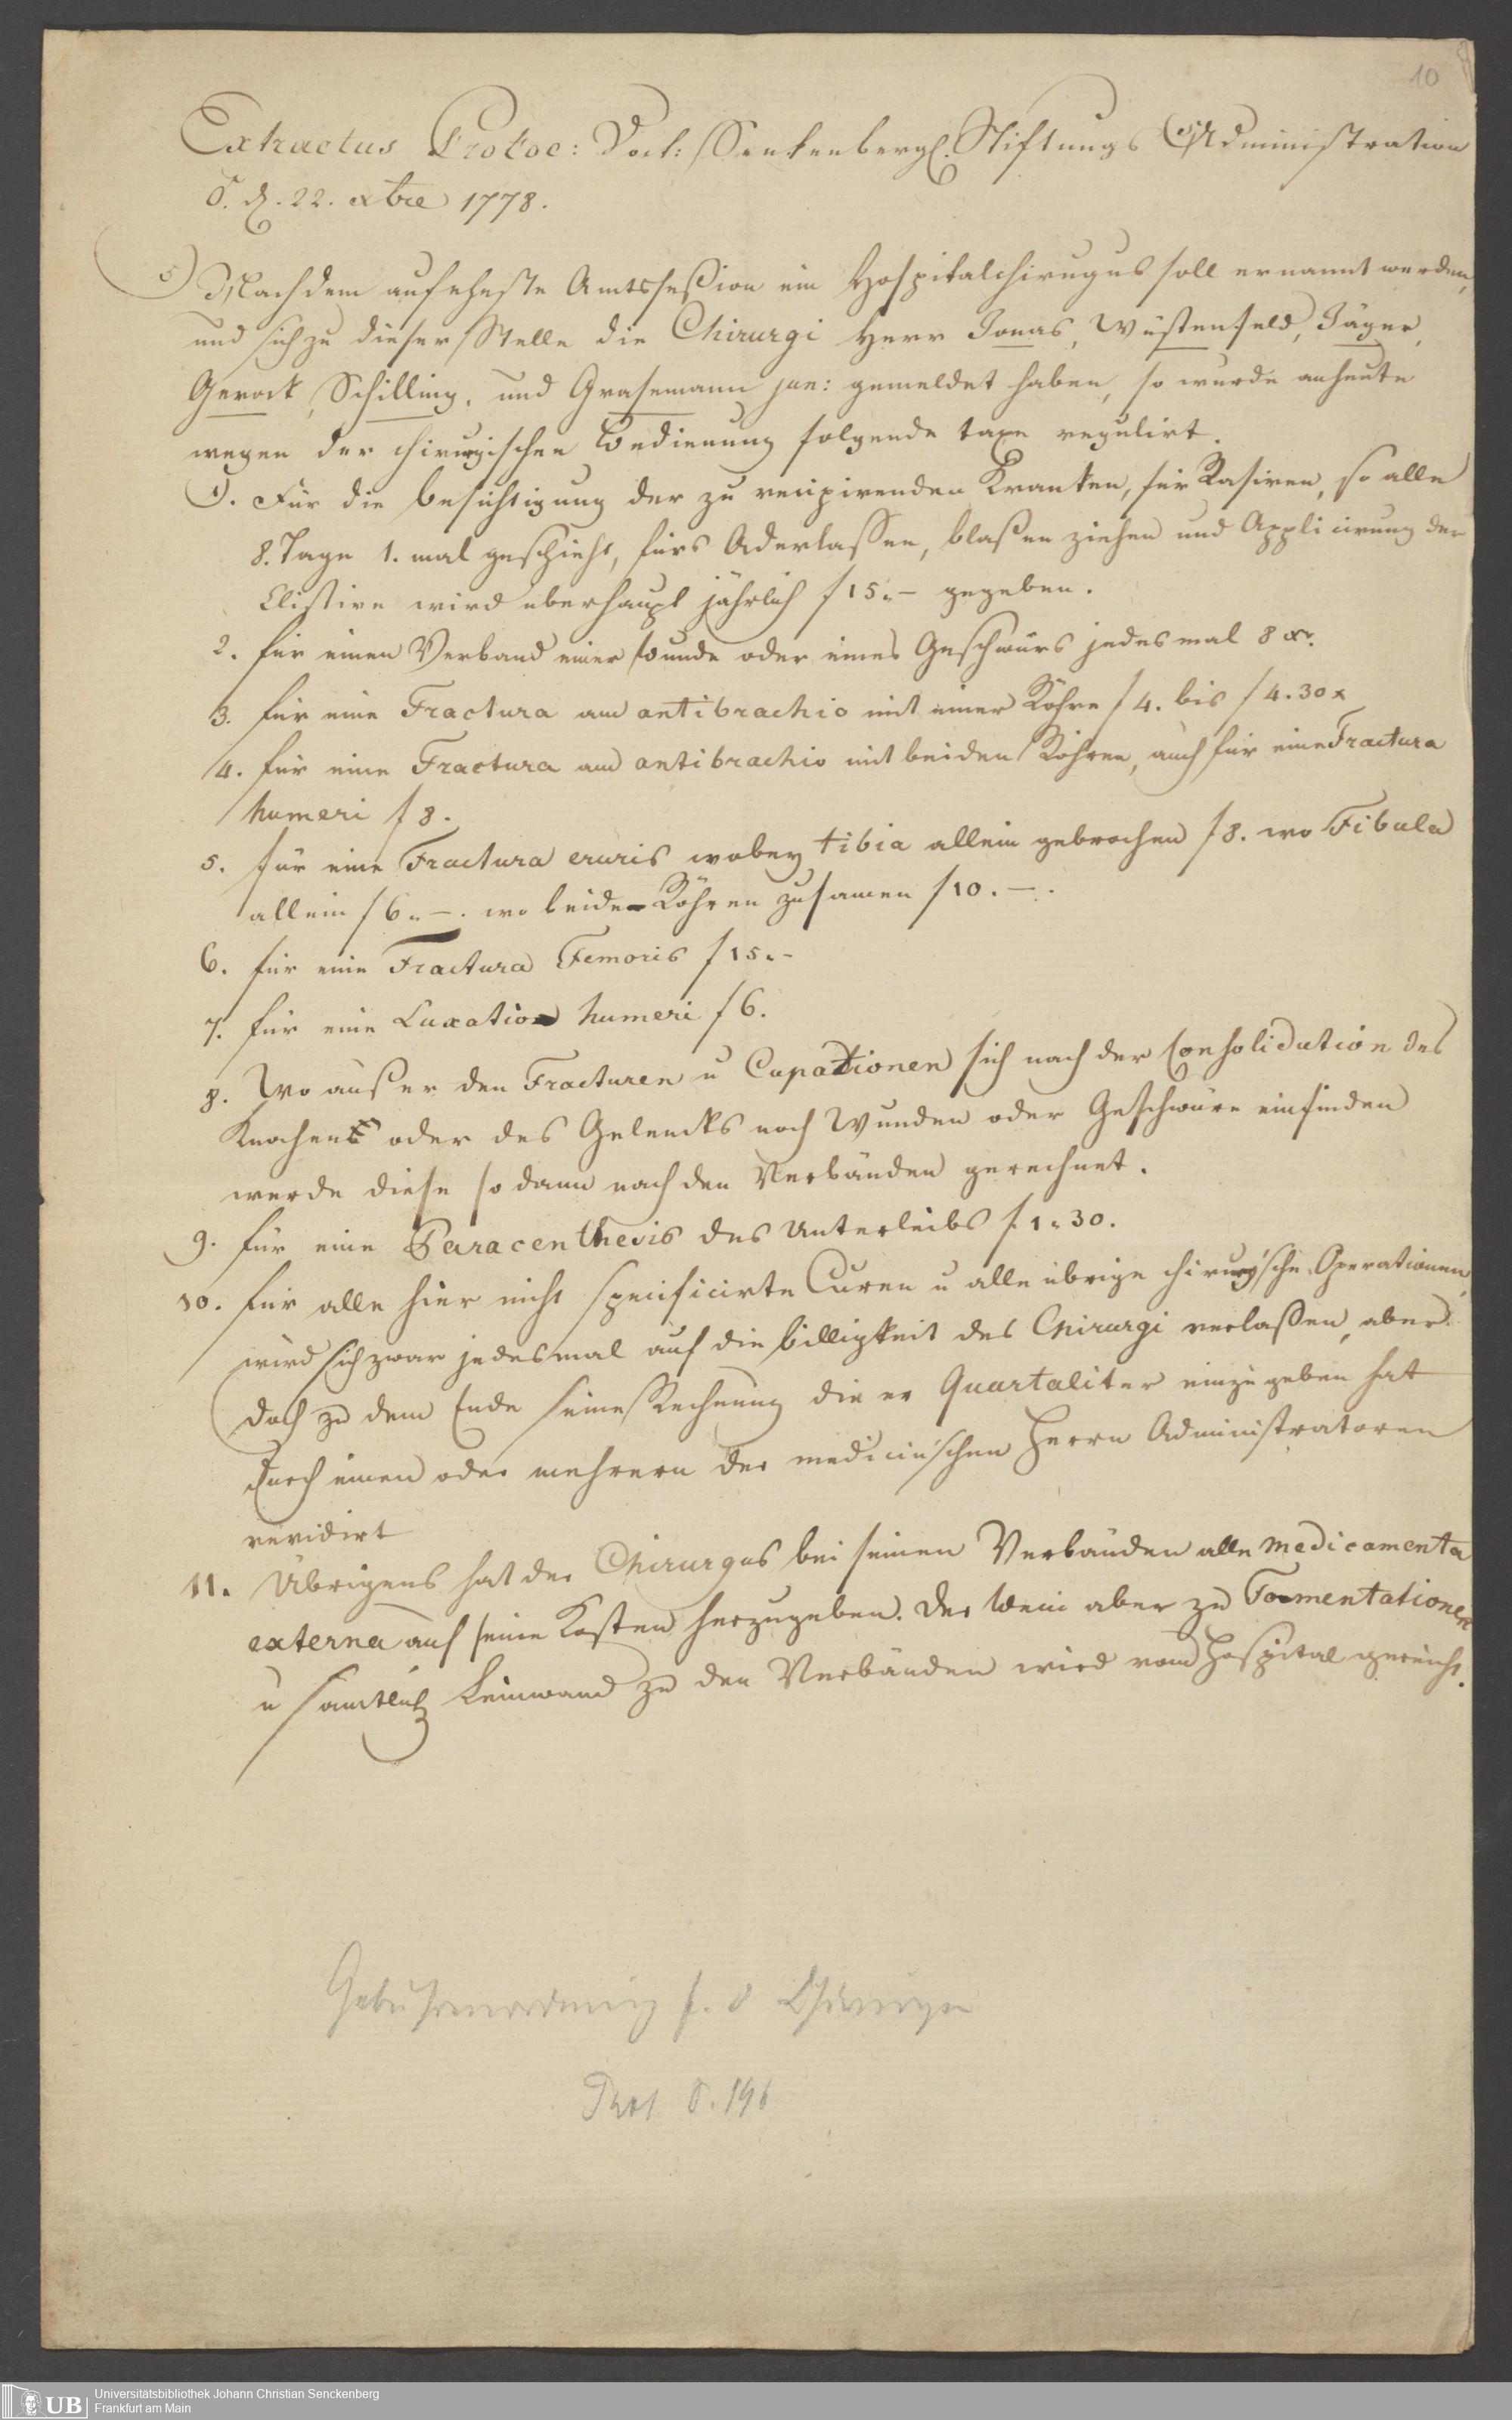 10
Extractus Protoc: Doct: Senckenbergl. Stiftungs Administration
d. d. 22. xbre 1778.
5) Nachdem auf eheste Amtssession ein Hospitalchirugus soll ernannt werden,
und sich zu dieser Stelle die Chirurgi Herr Jonas, Wüstenfeld, Jäger,
Gerock, Schilling, und Grasemann jun: gemeldet haben, so wurde anheute
wegen der chirurgischen Bedienung folgende taxe regulirt.
1). Für die besichtigung der zu recipirenden Kranken, für Rasiren, so alle
8. Tage 1. mal geschieht, fürs Aderlassen, blasen ziehen und Applicirung der
Clistire wird überhaupt jährlich f 15.– gegeben.
2. für einen Verband einer Wunde oder eines Geschwürs jedesmal 8 xr.
3. für eine Fractura am antibrachio mit einer Röhre f 4. bis f 4. 30 x
4. für eine Fractura am antibrachio mit beiden Röhren, auch für eine Fractura
humeri f 8.
5. für eine Fractura cruris wobey tibia allein gebrochen f 8. wo Fibula
allein f 6.–. wo beide Röhren zusamen f 10.–.
6. für eine Fractura Femoris f 15.–
7. für eine Luxation humeri f 6.
8. Wo außer den Fracturen u Luxationen sich nach der Consolidation des
Knochens oder des Gelencks noch Wunden oder Geschwüre einfinden
werde diese so dann nach den Verbänden gerechnet.
9. für eine Paracenthesis des Unterleibs f. 1. 30.
10. für alle hier nicht specificirte Curen u alle übrige chirurg'sche Operationen,
wird sich zwar jedesmal auf die billigkeit des Chirurgi verlaßen, aber
doch zu dem Ende seine Rechnung die er Quartaliter einzugeben hat
durch einen oder mehrern der medicin'schen Herrn Administratoren
revidirt
11. Übrigens hat der Chirurgus bei seinen Verbänden alle medicamenta
externa auf seine Kosten herzugeben. Der Wein aber zu Fomentationen
u samtlich Leinwand zu den Verbänden wird vom Hospital gereicht.
Gebührenordnung f. d Chirurgen
Prot S. 196
UB
Universitätsbibliothek Johann Christian Senckenberg
Frankfurt am Main